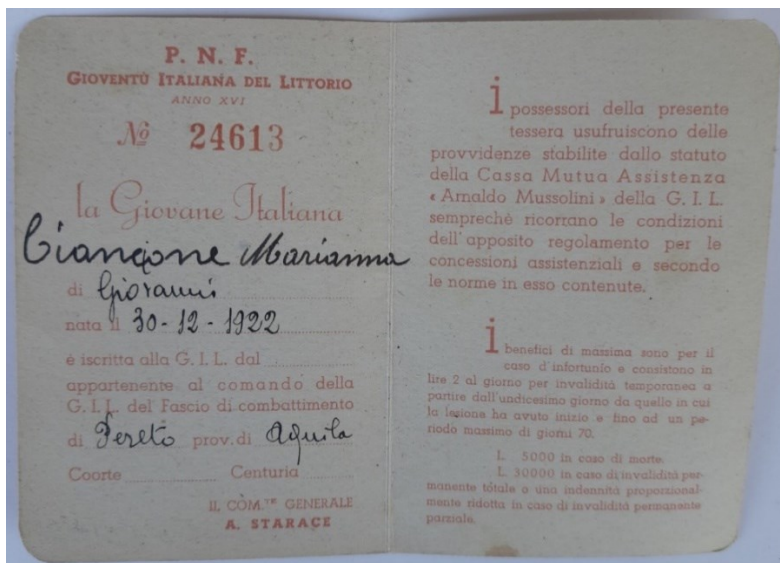 P. N. F.
GIOVENTÙ ITALIANA DEL LITTORIO
ANNO XVI
№ 24613
la Giovane Italiana
Ciançone Marianna
di Giovanni
nata il 30-12-1922
è iscritta alla G. I. L. dal
appartenente al comando della
G. I. L. del Fascio di combattimento
di Pereto prov. di Aquila
Coorte Centuria
IL COM.TE GENERALE
A. STARACE
i possessori della presente
tessera usufruiscono delle
provvidenze stabilite dallo statuto
della Cassa Mutua Assistenza
« Arnaldo Mussolini » della G. I. L.
semprechè ricorrano le condizioni
dell'apposito regolamento per le
concessioni assistenziali e secondo
le norme in esso contenute.
i benefici di massima sono per il
caso d'infortunio e consistono in
lire 2 al giorno per invalidità temporanea a
partire dall'undicesimo giorno da quello in cui
la lesione ha avuto inizio e fino ad un pe-
riodo massimo di giorni 70.
L. 5000 in caso di morte.
L. 30000 in caso di invalidità per-
manente totale o una indennità proporzional-
mente ridotta in caso di invalidità permanente
parziale.